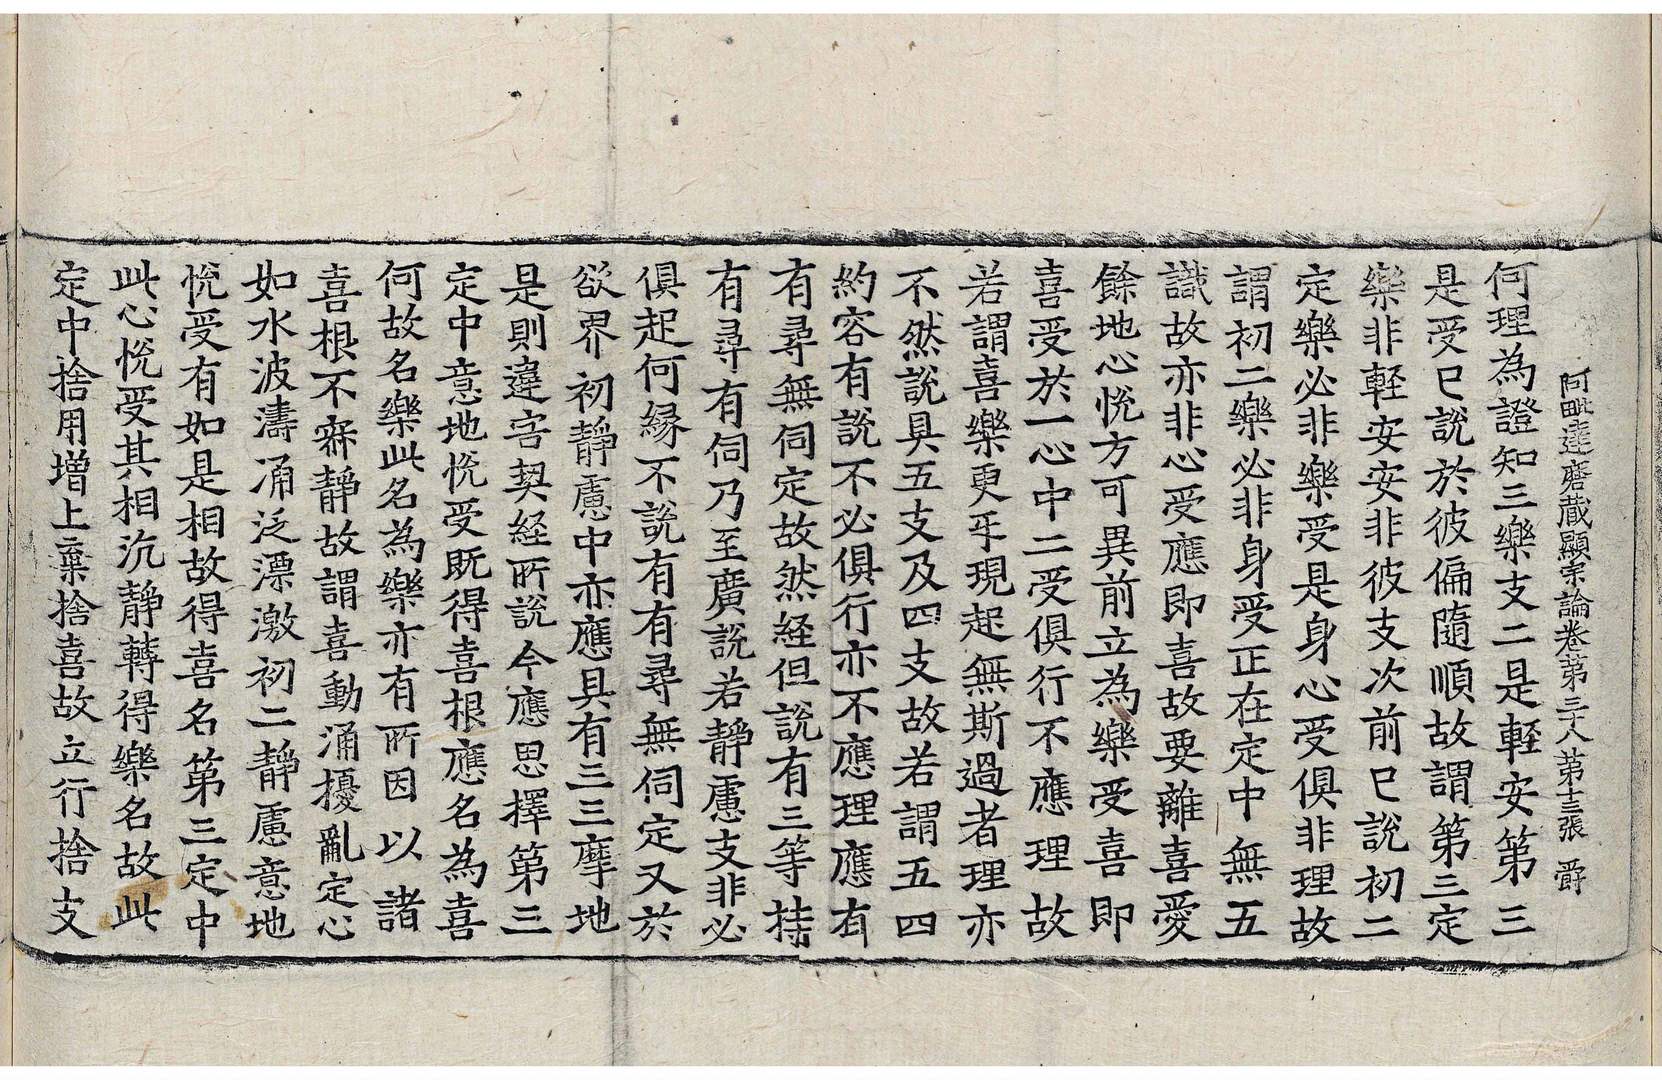 阿毗達磨藏顯宗論卷第三十八 第十三張 爵
何理為證知三樂支二是輕安第三
是受已說於彼偏隨順故謂第三定
樂非輕安安非彼支次前已說初二
定樂必非樂受是身心受俱非理故
謂初二樂必非身受正在定中無五
識故亦非心受應即喜故要離喜愛
餘地心悅方可異前立為樂受喜即
喜受於一心中二受俱行不應理故
若謂喜樂更互現起無斯過者理亦
不然說具五支及四支故若謂五四
約容有說不必俱行亦不應理應有
有尋無伺定故然経但說有三等持
有尋有伺乃至廣說若靜慮支非必
俱起何緣不說有有尋無伺定又於
欲界初靜慮中亦應具有三三摩地
是則違害契経所說今應思擇第三
定中意地悅受既得喜根應名為喜
何故名樂此名為樂亦有所因以諸
喜根不寂靜故謂喜動涌擾亂定心
如水波濤涌泛漂激初二靜慮意地
悅受有如是相故得喜名第三定中
此心悅受其相沉靜轉得樂名故此
定中捨用增上棄捨喜故立行捨支